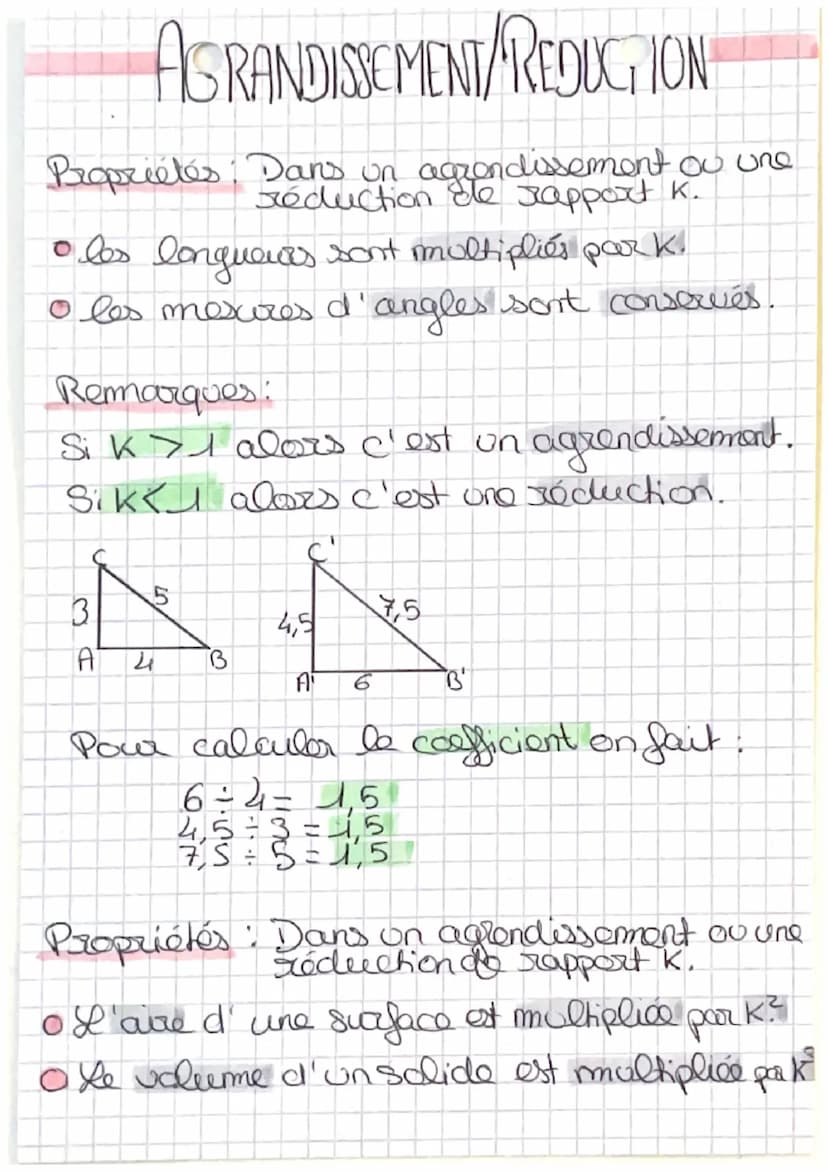 AGRANDISSEMENT/REDUCTION
Propriétés : Dans un agrandissement ou une
réduction de rapport K.
les longueurs sont multipliés par K.
les mesures d'angles sont conservés.
Remarques :
Si K > 1 alors c'est un agrandissement.
Si K < 1 alors c'est une réduction.
C C'
3 5 4,5 7,5
A 4 B A' 6 B'
Pour calculer le coefficient on fait :
6 ÷ 4 = 1,5
4,5 ÷ 3 = 1,5
7,5 ÷ 5 = 1,5
Propriétés : Dans un agrandissement ou une
réduction de rapport K.
L'aire d'une surface est multipliée par K²
Le volume d'un solide est multipliée par K³